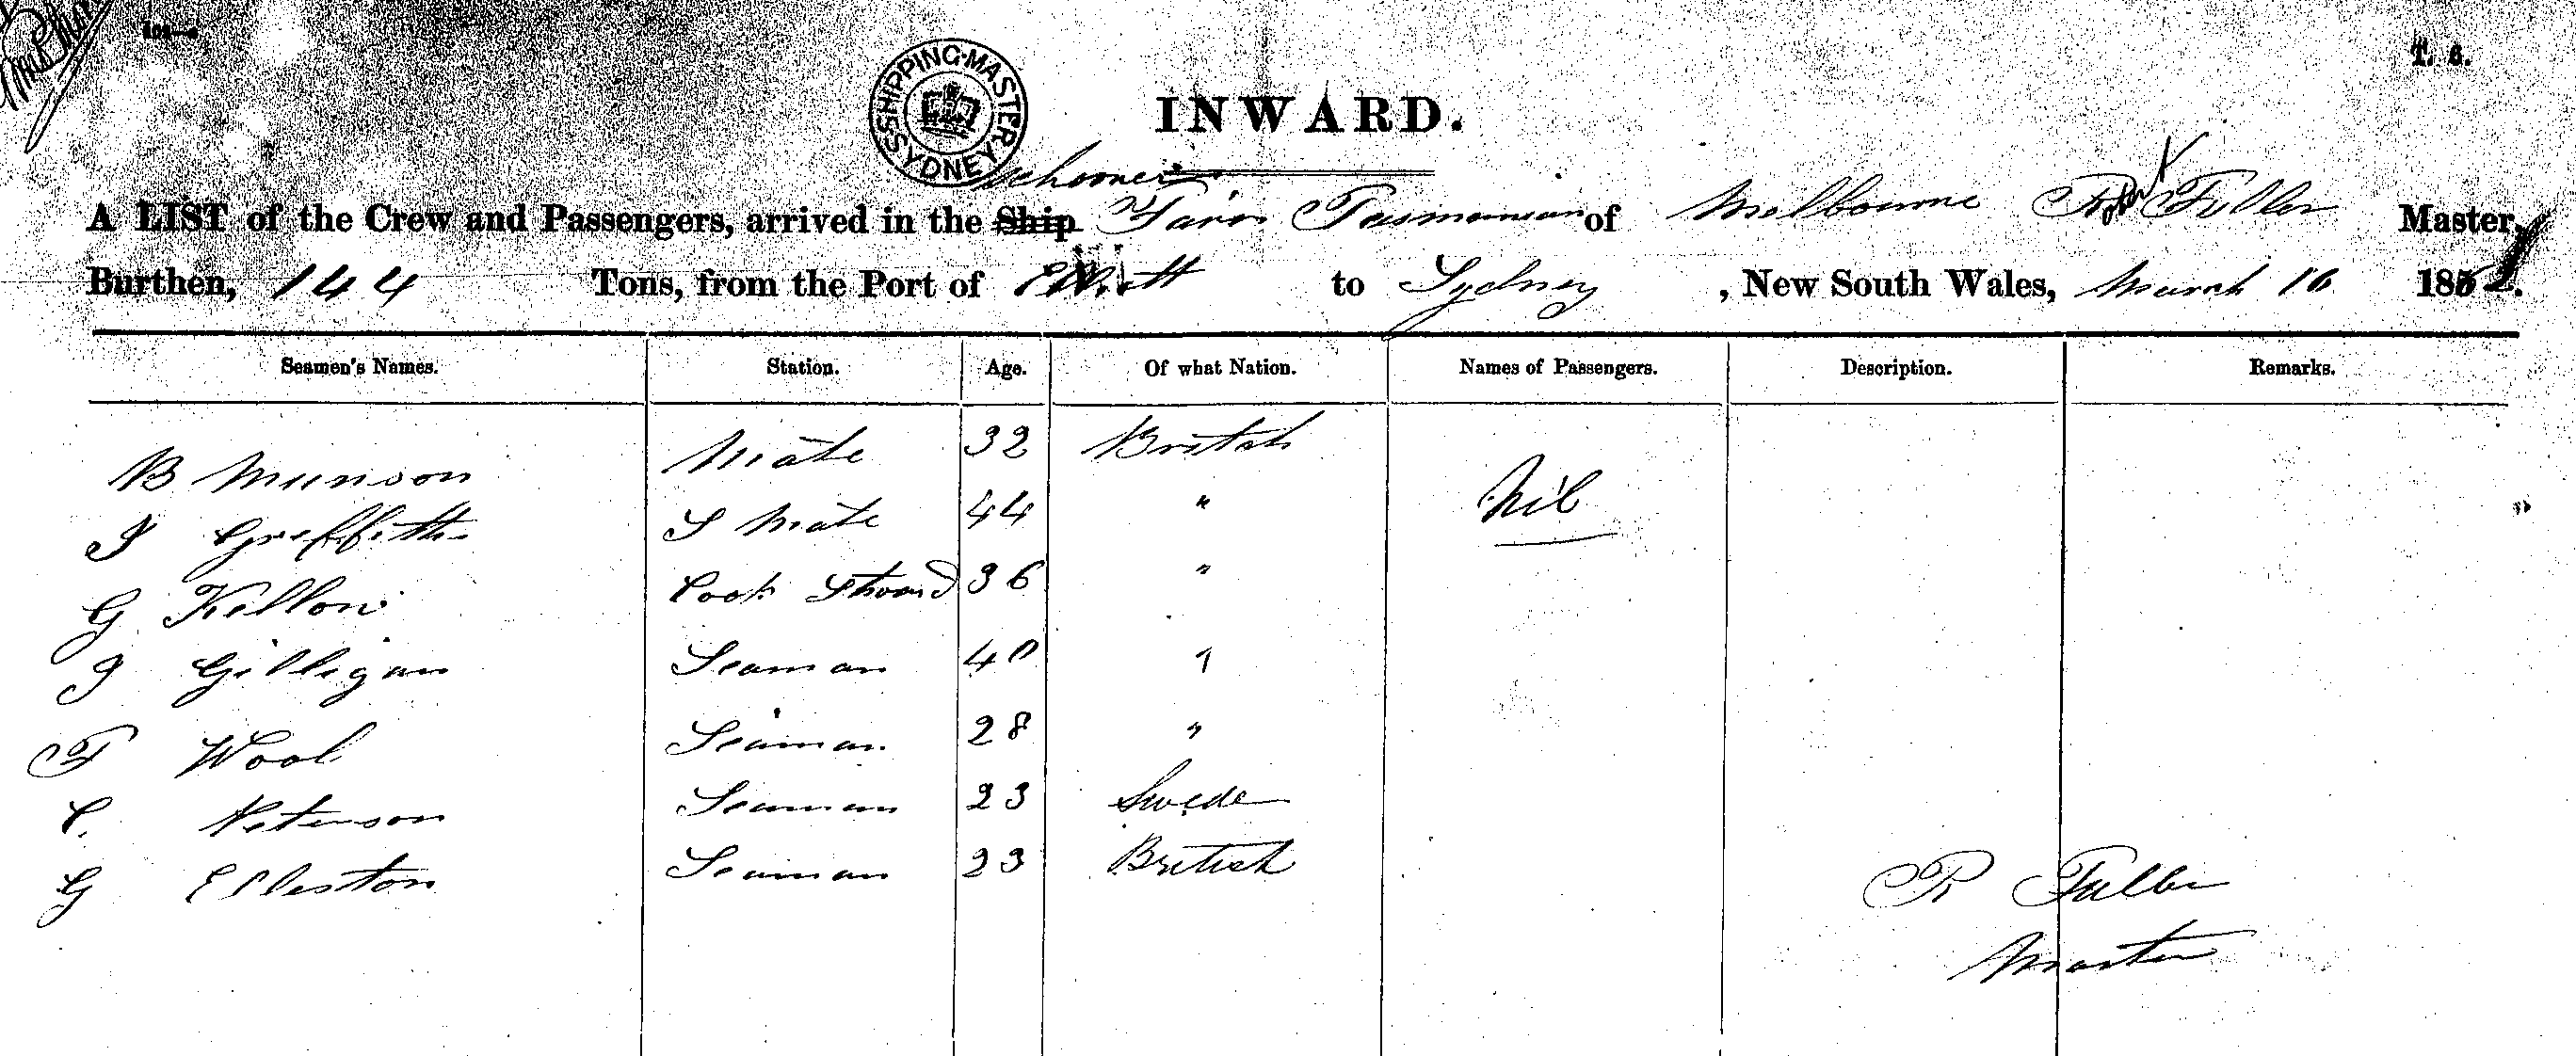 T. 6.
SHIPPING MASTER SYDNEY
INWARD.
Schooner
A LIST of the Crew and Passengers, arrived in the Ship Fair Tasmanian of Melbourne R Fuller Master,
Burthen, 144 Tons, from the Port of to Sydney, New South Wales, March 16 186
Seamen's Names. Station. Age. Of what Nation. Names of Passengers. Description. Remarks.
B Munson Mate 32 British
J Greffith S Mate 44 " Nil
G Kellow Cook Stward 36 "
J Gilligan Seaman 40 "
F Wool Seaman 28 "
C. Peterson Seaman 23 Swede
G Seaman 23 British
R Fuller
Master